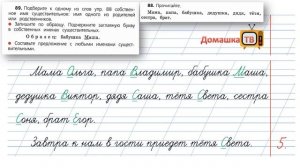 89. Подберите к одному из слов упр. 88 собственное имя существительное: имя одного из родителей или родственников.
Запишите по образцу. Подчеркните заглавную букву в собственных именах существительных.
Образец: бабушка Маша.
Составьте предложение с любыми именами существительными.
88. Прочитайте.
Мама, папа, бабушка, дедушка, дядя, тётя, сестра, брат.
Домашка
ТВ
Мама Ольга, папа Владимир, бабушка Маша,
дедушка Виктор, дядя Саша, тётя Света, сестра
Соня, брат Егор.
Завтра к нам в гости приедет тётя Света.
5